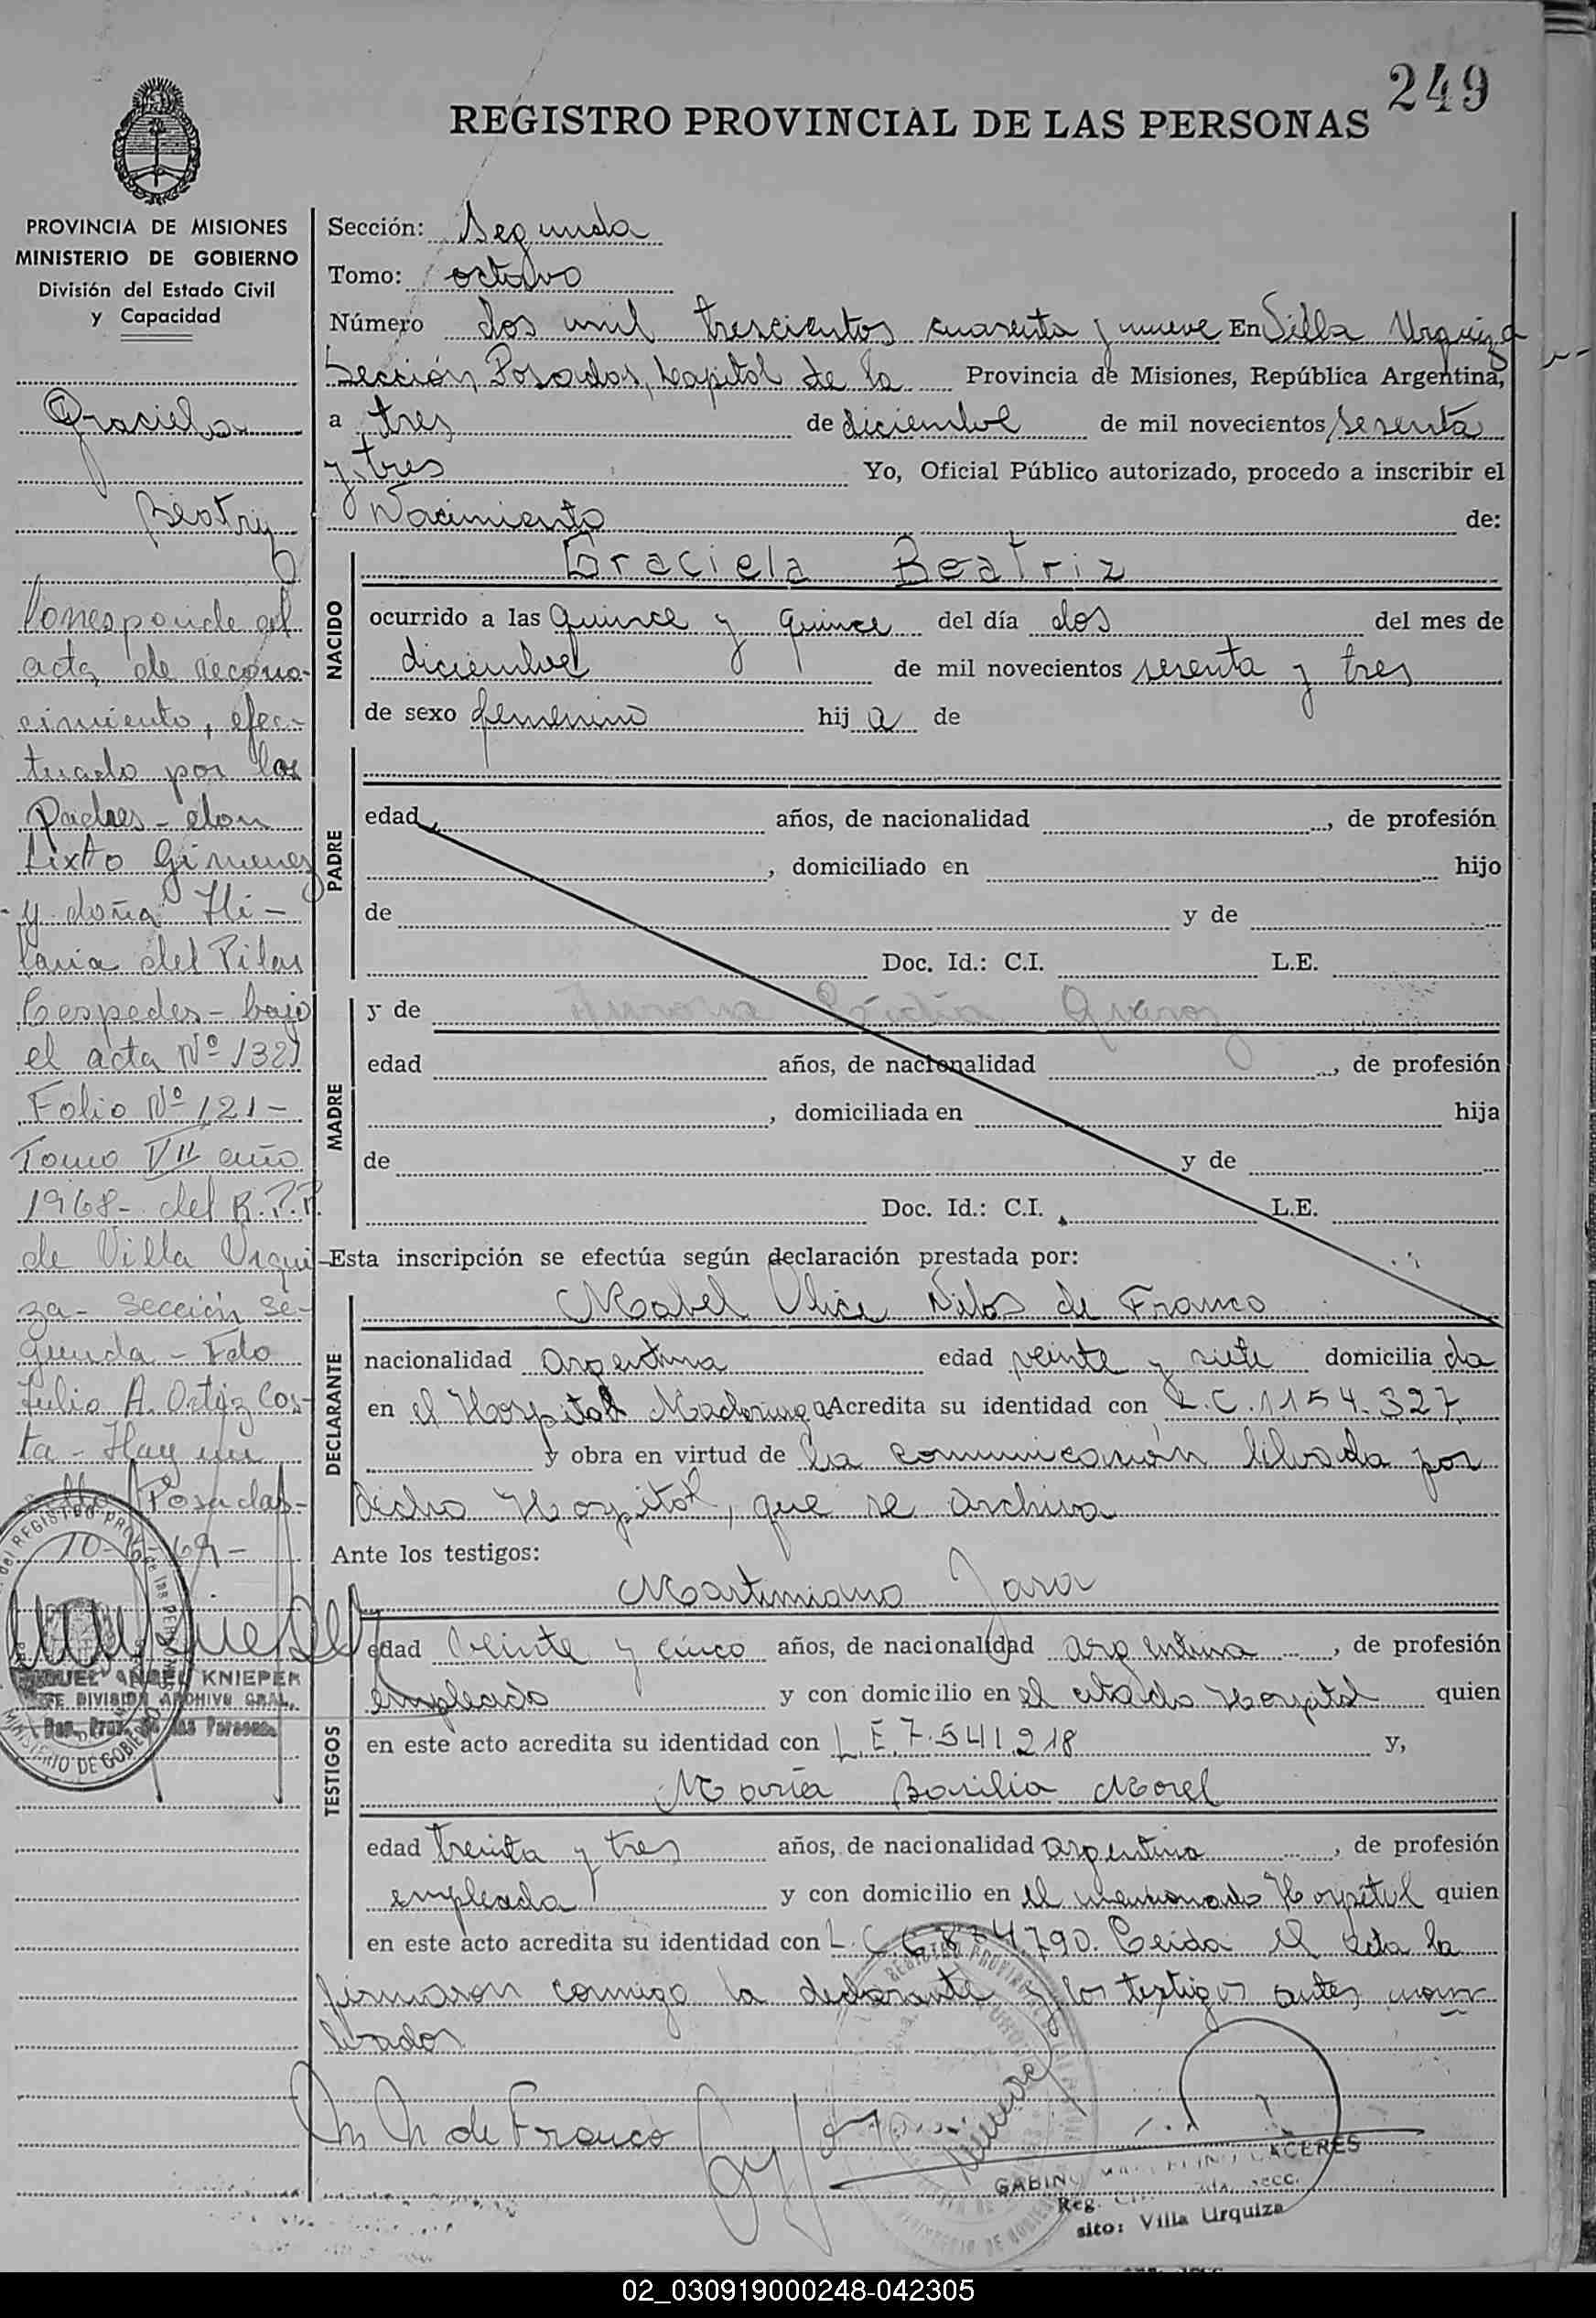 249
REGISTRO PROVINCIAL DE LAS PERSONAS
PROVINCIA DE MISIONES
MINISTERIO DE GOBIERNO
División del Estado Civil
y Capacidad
Graciela
Beatriz
Corresponde al
acta de recono-
cimiento, efec-
tuado por los
Padres - don
Sixto Gimenez
y doña Hi-
laria del Pilar
Cespedes - bajo
el acta Nº 1321
Folio Nº 121 -
Tomo VII año
1968 - del R.P.P.
de Villa Urqui-
za - Sección Se-
gunda - Fdo
Julio A. Ortiz Cos-
ta - Hay un
sello Posadas -
10-6-69 -
MIGUEL ANGEL KNIEPER
JEFE DIVISION ARCHIVO GRAL.
Reg. Prov. de las Personas
MINISTERIO DE GOBIERNO
Sección: Segunda
Tomo: octavo
Número dos mil trescientos cuarenta y nueve En Villa Urquiza
Sección Posadas, Capital de la Provincia de Misiones, República Argentina,
a tres de diciembre de mil novecientos sesenta
y tres Yo, Oficial Público autorizado, procedo a inscribir el
Nacimiento de:
NACIDO
Graciela Beatriz
ocurrido a las quince y quince del día dos del mes de
diciembre de mil novecientos sesenta y tres
de sexo femenino hija de
PADRE
edad años, de nacionalidad , de profesión
, domiciliado en hijo
de y de
Doc. Id.: C.I. L.E.
MADRE
y de
edad años, de nacionalidad , de profesión
, domiciliada en hija
de y de
Doc. Id.: C.I. L.E.
Esta inscripción se efectúa según declaración prestada por:
DECLARANTE
Mabel Alice de Franco
nacionalidad argentina edad veinte y siete domiciliada
en el Hospital Madariaga Acredita su identidad con L.C. 1154.327
y obra en virtud de la comunicación librada por
dicho Hospital, que se archiva
Ante los testigos:
TESTIGOS
Martimiano Jara
edad veinte y cinco años, de nacionalidad argentina , de profesión
empleado y con domicilio en el citado Hospital quien
en este acto acredita su identidad con L.E. 7.541.218 y,
María Basilia Morel
edad treinta y tres años, de nacionalidad argentina , de profesión
empleada y con domicilio en el mencionado Hospital quien
en este acto acredita su identidad con L.C. 790. Leida el acta la
firmaron conmigo la declarante y los testigos antes nom-
brados
M N de Franco
GABINO CACERES
Reg.
sito: Villa Urquiza
02_030919000248-042305